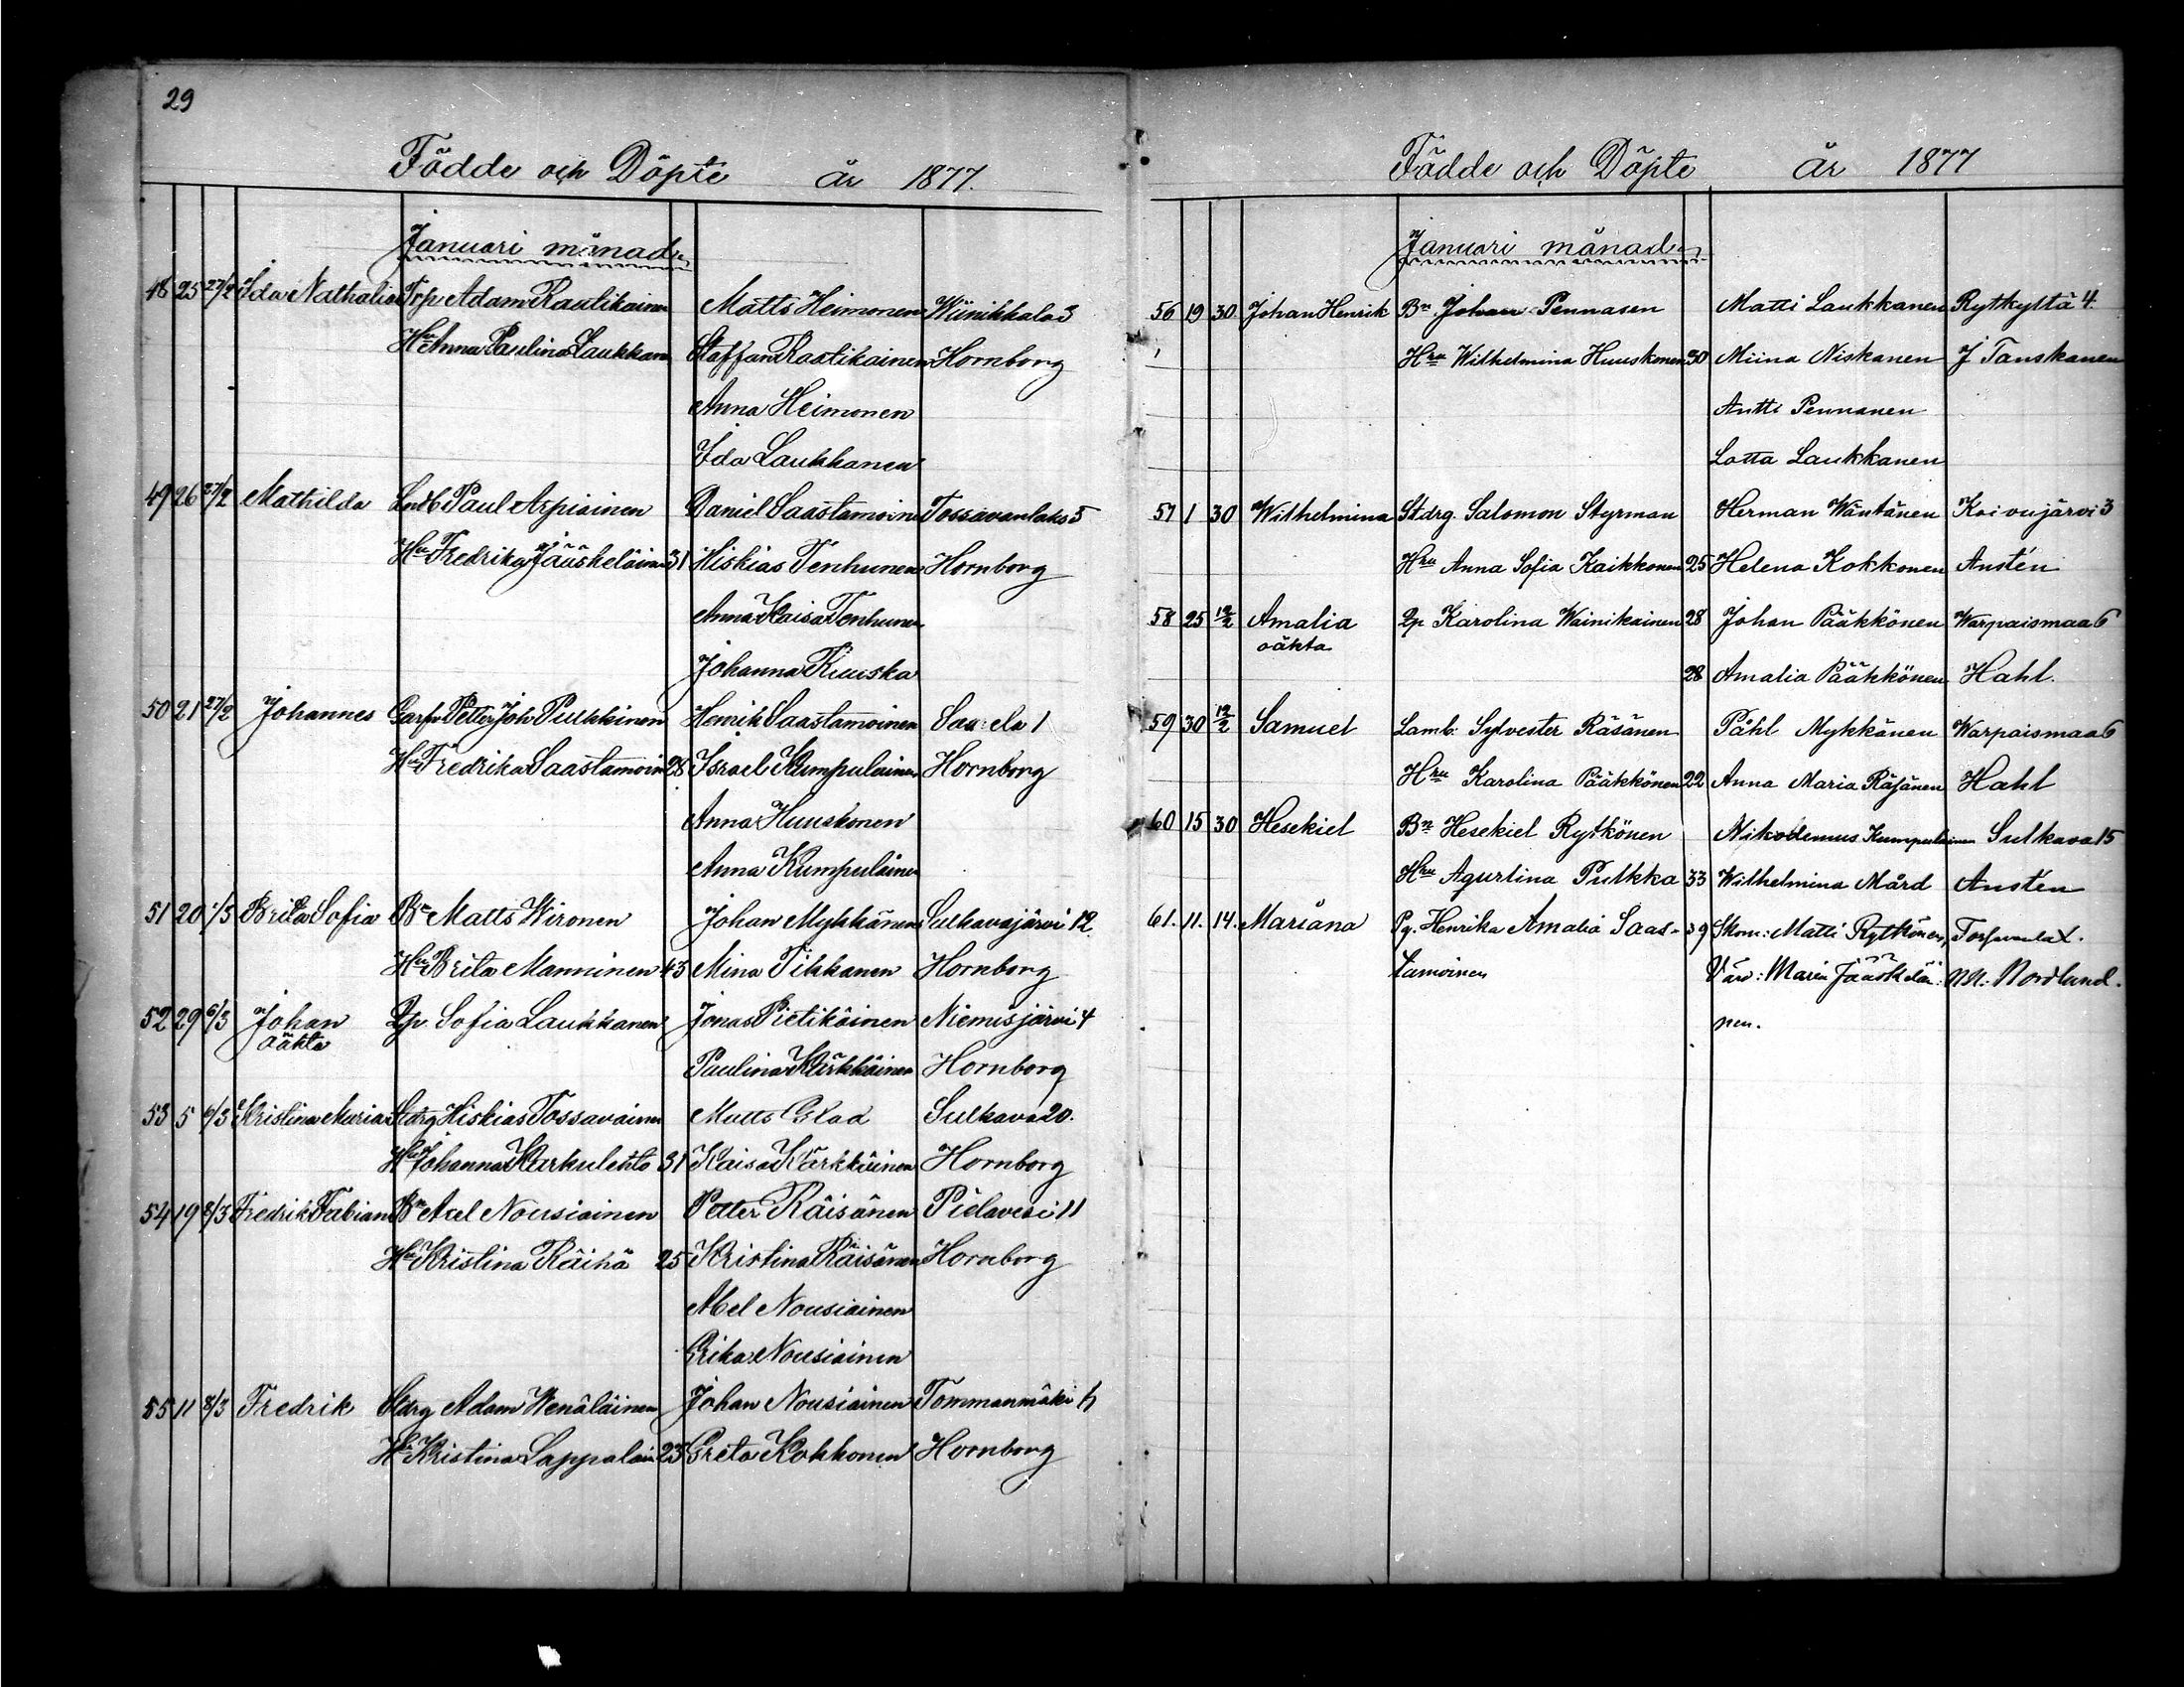 29
Födde och Döpte år 1877.
Januari månad.
48 25 27/2 Ida Nathalia Trp Adam Rautikainen Matts Heimonen Wiinikkala 3
Hu Anna Paulina Laukkan Staffan Rautikainen Hornborg
Anna Heimonen
Ida Laukkanen
49 26 27/2 Mathilda Lndb Paul Arpiainen Daniel Saastamoine Tossavanlaks 5
Hu Fredrika Jääskeläine 31 Hiskias Tenhunen Hornborg
Anna Kaisa Tenhunen
Johanna Ruuska
50 21 27/2 Johannes Petter Joh Pulkkinen Henrik Saastamoinen Saarela 1
Hu Fredrika Saastamoin 28 Israel Kumpulainen Hornborg
Anna Huuskonen
Anna Kumpulainen
51 20 1/3 Brita Sofia Bn Matts Wironen Johan Mykkänen Sulkavajärvi 12.
Hu Brita Manninen 43 Mina Tikkanen Hornborg
52 29 6/3 Johan Pp Sofia Laukkanen Jonas Pietikäinen Niemisjärvi 4
oäkta
Paulina Kärkkäinen Hornborg
53 5 6/3 Kristina Maria Stdrg Hiskias Tossavainen Matts Glad Sulkava 20.
Hu Johanna Karkulehto 31 Kaisa Kärkkäinen Hornborg
54 19 8/3 Fredrik Fabian Bn Axel Nousiainen Petter Räisänen Pielavesi 11
Hu Kristina Räihä 25 Kristina Räisänen Hornborg
Abel Nousiainen
Erika Nousiainen
55 11 8/3 Fredrik Stdrg Adam Wenäläinen Johan Nousiainen Tommanmäki
Hu Kristina Lappalain 23 Greta Kokkonen Hornborg
Födde och Döpte år 1877
Januari månad
56 19 30 Johan Henrik Bn Johan Pennasen Matti Laukkanen Rytkyltä 4.
Hru Wilhelmina Huuskonen 30 Miina Niskanen J Tanskanen
Antti Pennanen
Lotta Laukkanen
57 1 30 Wilhelmina Stdrg. Salomon Styrman Herman Wäntänen Koivujärvi 3
Hru Anna Sofia Kaikkonen 25 Helena Kokkonen Austén
58 25 12/2 Amalia Pp Karolina Wainikainen 28 Johan Pääkkönen Warpaismaa 6
oäkta
28 Amalia Pääkkönen Hahl.
59 30 12/2 Samuel Lamb: Sylvester Räsänen Påhl Mykkänen Warpaismaa 6
Hru Karolina Pääkkönen 22 Anna Maria Räsänen Hahl
60 15 30 Hesekiel Bn Hesekiel Rytkönen Nikodemus Kumpulainen Sulkava 15
Hru Agustina Pulkka 33 Wilhelmina Mård Austén
61. 11. 14. Mariana Pg. Henrika Amalia Saas- 39 Skom: Matti Rytkönen,
tamoinen Värd: Maria Jääskeläi: Nordlund.
nen.